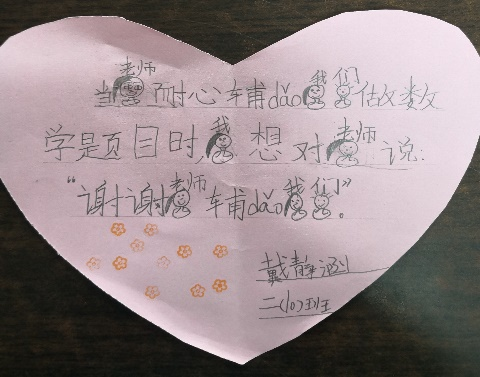 当老师耐心辅dǎo我们做数
学题目时,我想对老师说:
“谢谢老师辅dǎo我们”。
戴静涵
二(10)班